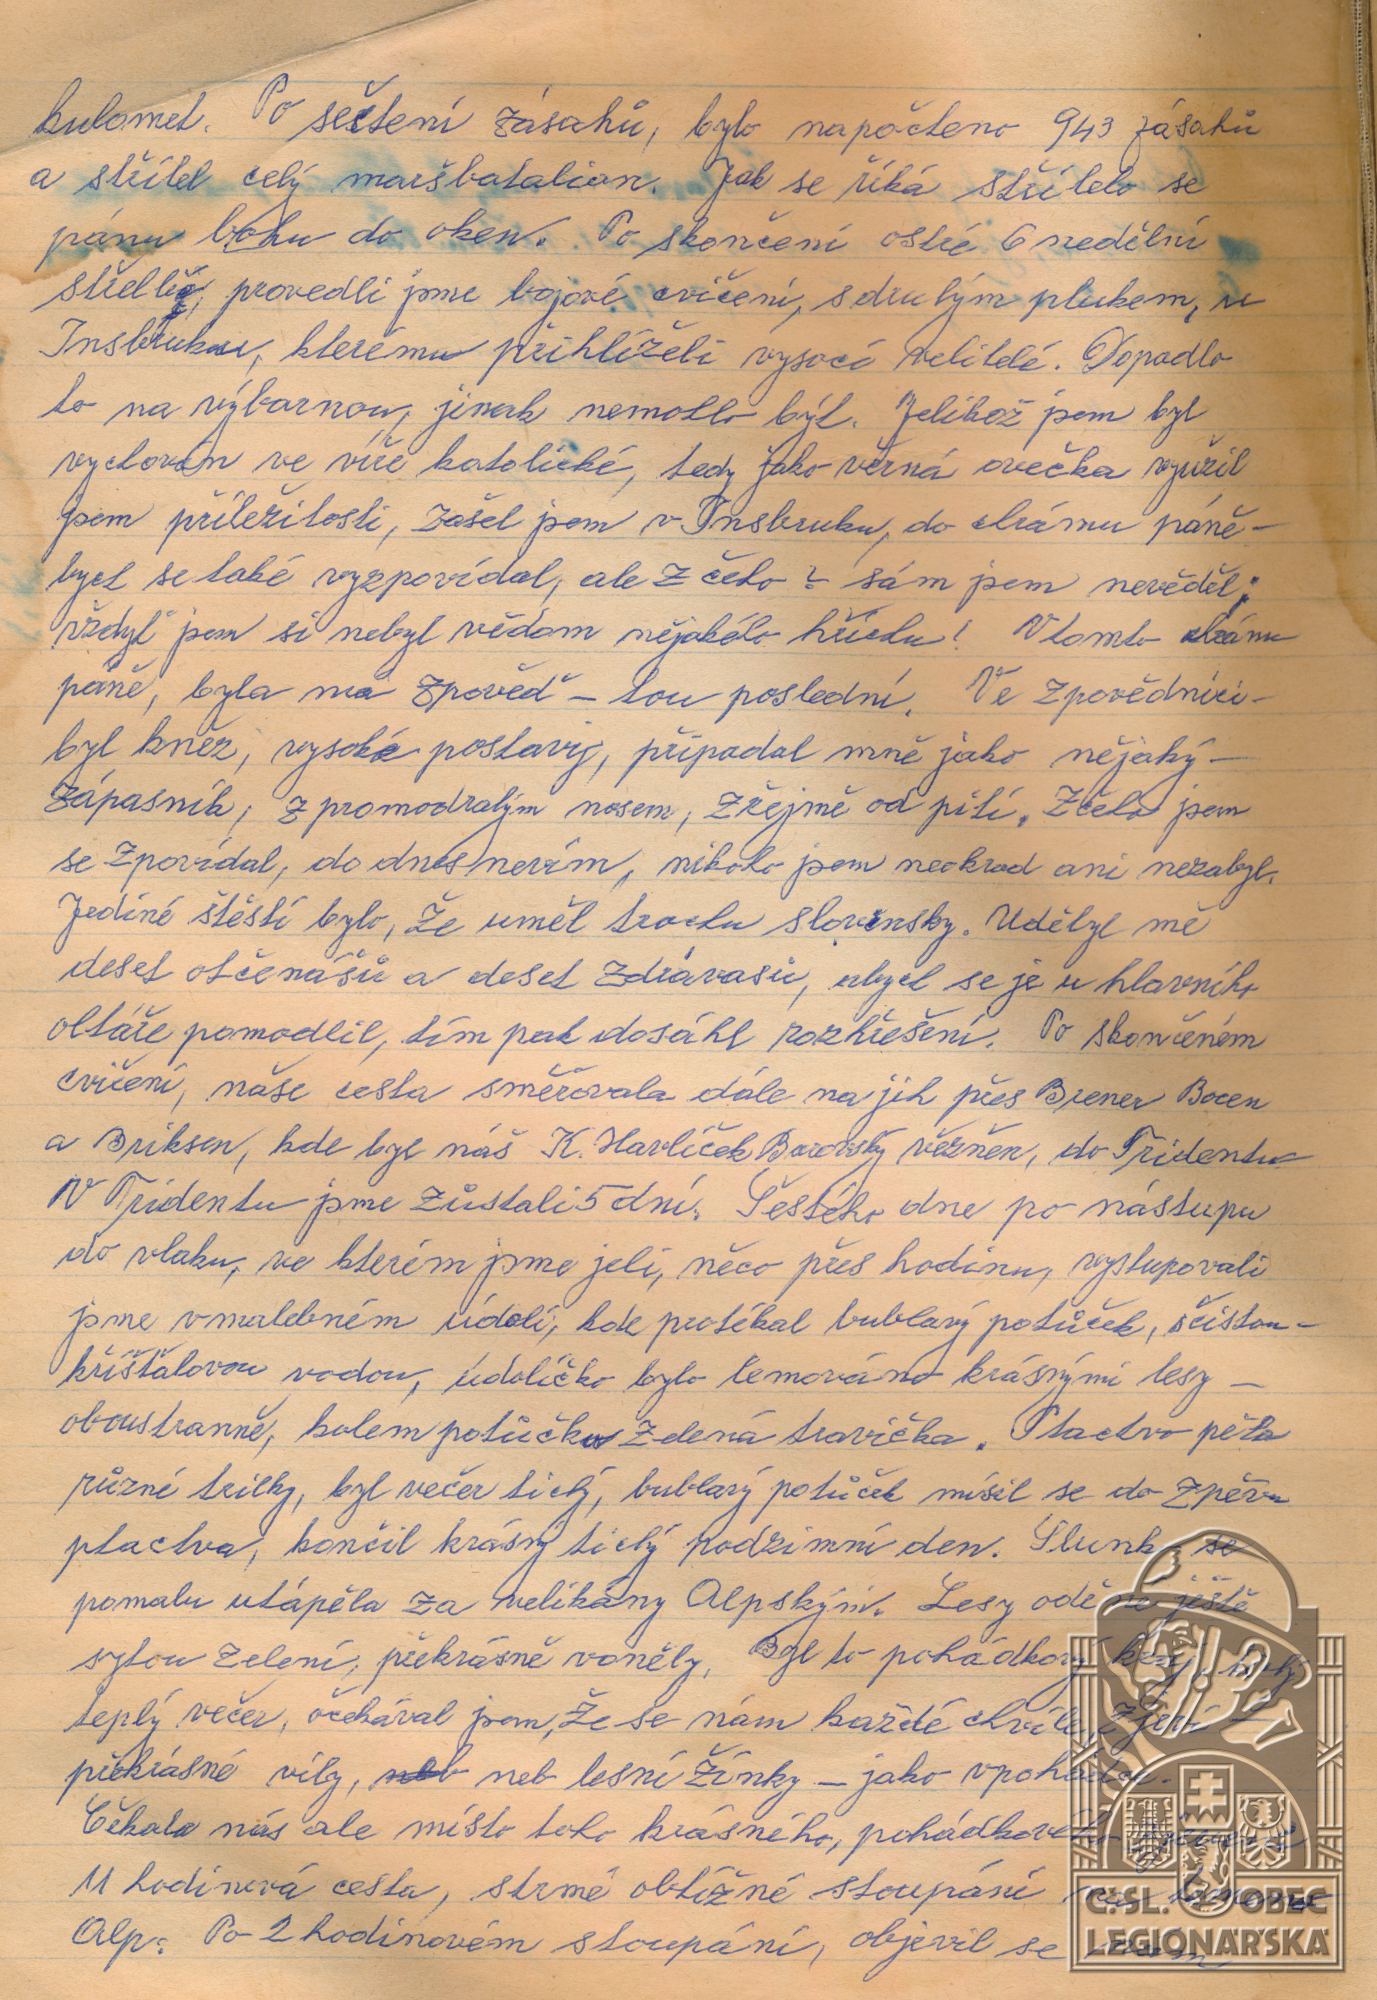 kulomet. Po sečtení zásahů, bylo napočteno 943 zásahů
a střílel celý maršbatalion. Jak se říká střílelo se
pánu bohu do oken. Po skončení ostré 6 nedělní
střelbě, provedli jsme bojové cvičení, s druhým plukem, u
Insbruku, kterému přihlíželi vysocí velitelé. Dopadlo
to na výbornou, jinak nemohlo být. Jelikož jsem byl
vychován ve víře katolické, tedy jako věrná ovečka využil
jsem příležitosti, zašel jsem v Insbruku, do chrámu páně-
bych se také vyzpovídal, ale z čeho? sám jsem nevěděl;
vždyť jsem si nebyl vědom nějakého hříchu! V tomto chrámu
páně, byla má zpověď - tou poslední. Ve zpovědnici-
byl kněz, vysoké postavy, připadal mně jako nějaký-
zápasník, z promodralým nosem, zřejmě od pití. Zčeho jsem
se zpovídal, do dnes nevím, nikoho jsem neokrad ani nezabyl.
Jediné štěstí bylo, že uměl trochu slovensky. Udělyl mě
deset otčenášů a deset zdrávasů, abych se je u hlavního
oltáře pomodlil, tím pak dosáhl rozhřešení. Po skončeném
cvičení, naše cesta směřovala dále na jih přes Brener Bocen
a Briksen, kde byl náš K. Havlíček Borovský vězněn, do Tridentu
V Tridentu jsme zůstali 5 dní. Šestého dne po nástupu
do vlaku, ve kterém jsme jeli, něco přes hodinu, vystupovali
jsme v malebném údolí, kde protékal bublavý potůček, sčistou-
křišťálovou vodou, údolíčko bylo lemováno krásnými lesy -
oboustranně, kolem potůčku zelená travička. Ptactvo pěla
různé trilky, byl večer tichý, bublavý potůček mísil se do zpěvu
ptactva, končil krásný tichý podzimní den. Slunko se
pomalu utápěla za velikány Alpskými. Lesy oděné ještě
sytou zelení, překrásně voněly. Byl to pohádkový kraj,
teplý večer, očekával jsem, že se nám každé chvíle zjeví -
překrásné víly, neb lesní žínky - jako v pohádce.
Čekala nás ale místo toho krásného, pohádkového
11 hodinová cesta, strmé obtížné stoupání na
Alp. Po 2 hodinovém stoupání, objevil se nám
Č.SL. OBEC
LEGIONÁŘSKÁ